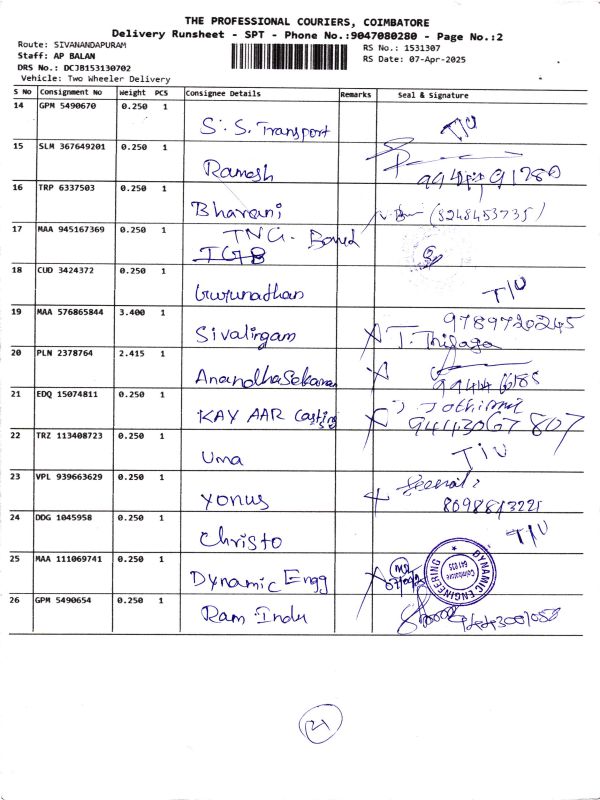 THE PROFESSIONAL COURIERS, COIMBATORE
Delivery Runsheet - SPT - Phone No.:9047080280 - Page No.:2
Route: SIVANANDAPURAM
Staff: AP BALAN
DRS No.: DCJB153130702
Vehicle: Two Wheeler Delivery
RS No.: 1531307
RS Date: 07-Apr-2025
S No Consignment No Weight PCS Consignee Details Remarks Seal & Signature
14 GPM 5490670 0.250 1 S. S. Transport T/U
15 SLM 367649201 0.250 1 Ramesh
16 TRP 6337503 0.250 1 Bharani (8248453735)
17 MAA 945167369 0.250 1 TNG. Board
18 CUD 3424372 0.250 1 Gurunathan T/U
19 MAA 576865844 3.400 1 Sivalingam 9789720245
J. Thilaga
20 PLN 2378764 2.415 1 Anandhasekaran
21 EDQ 15074811 0.250 1 KAY AAR Casting 9443067807
22 TRZ 113408723 0.250 1 Uma T/U
23 VPL 939663629 0.250 1 Yonus
24 DDG 1045958 0.250 1 Christo T/U
25 MAA 111069741 0.250 1 Dynamic Engg DYNAMIC ENGINEERING Coimbatore 641 035
26 GPM 5490654 0.250 1 Ram Indu
21